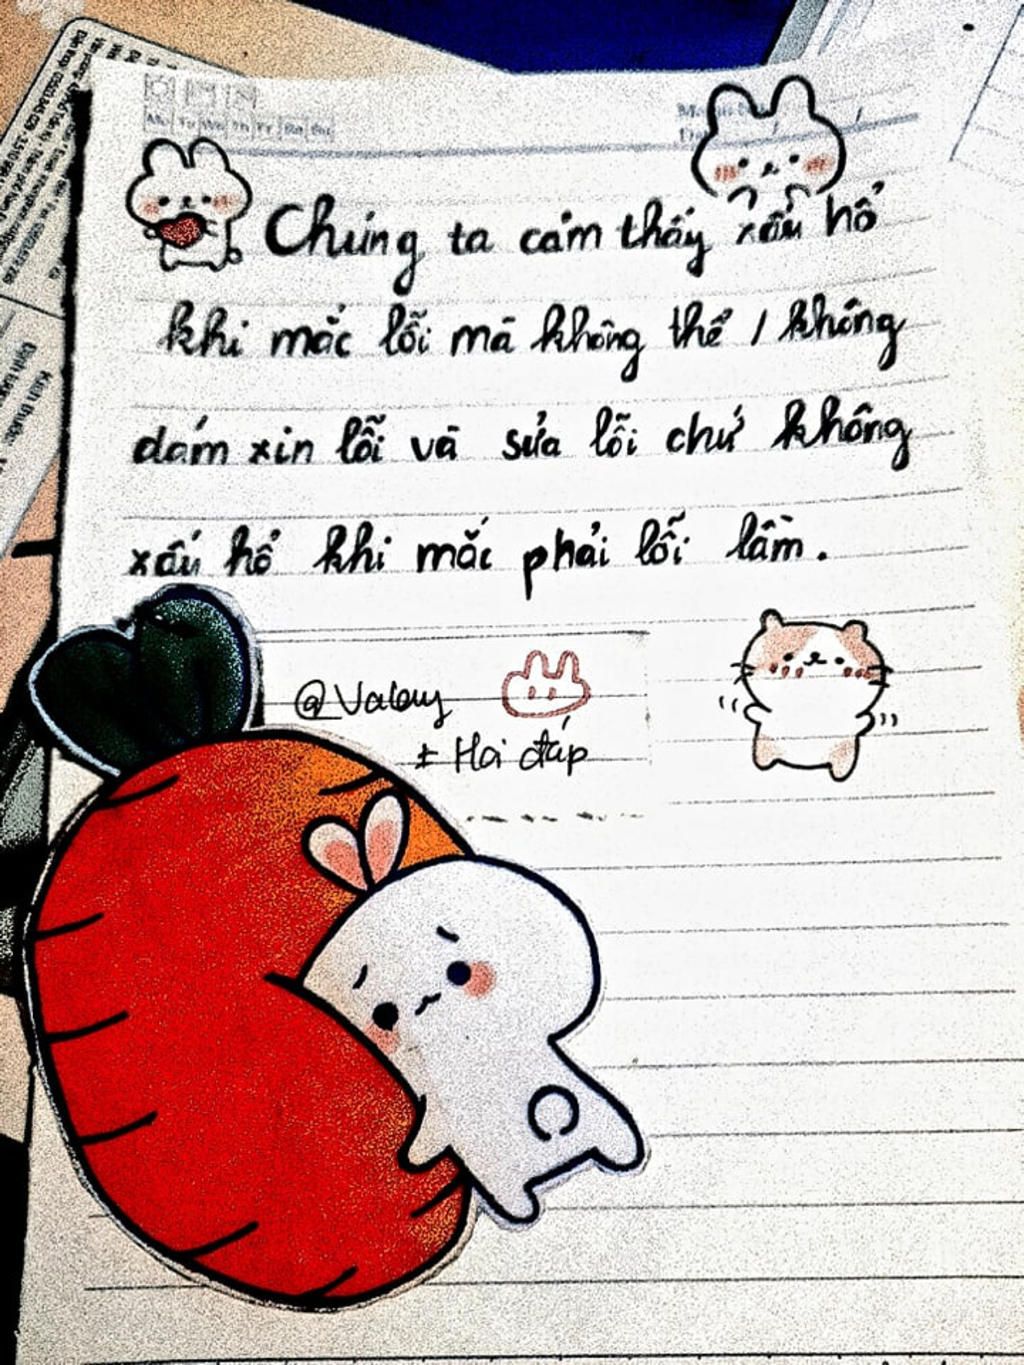 Mo Tu We Th Fr Sa Su
Chúng ta cảm thấy xấu hổ
khi mắc lỗi mà không thể / không
dám xin lỗi và sửa lỗi chứ không
xấu hổ khi mắc phải lỗi lầm.
@Valeuy
± Hỏi đáp
Kích thước: